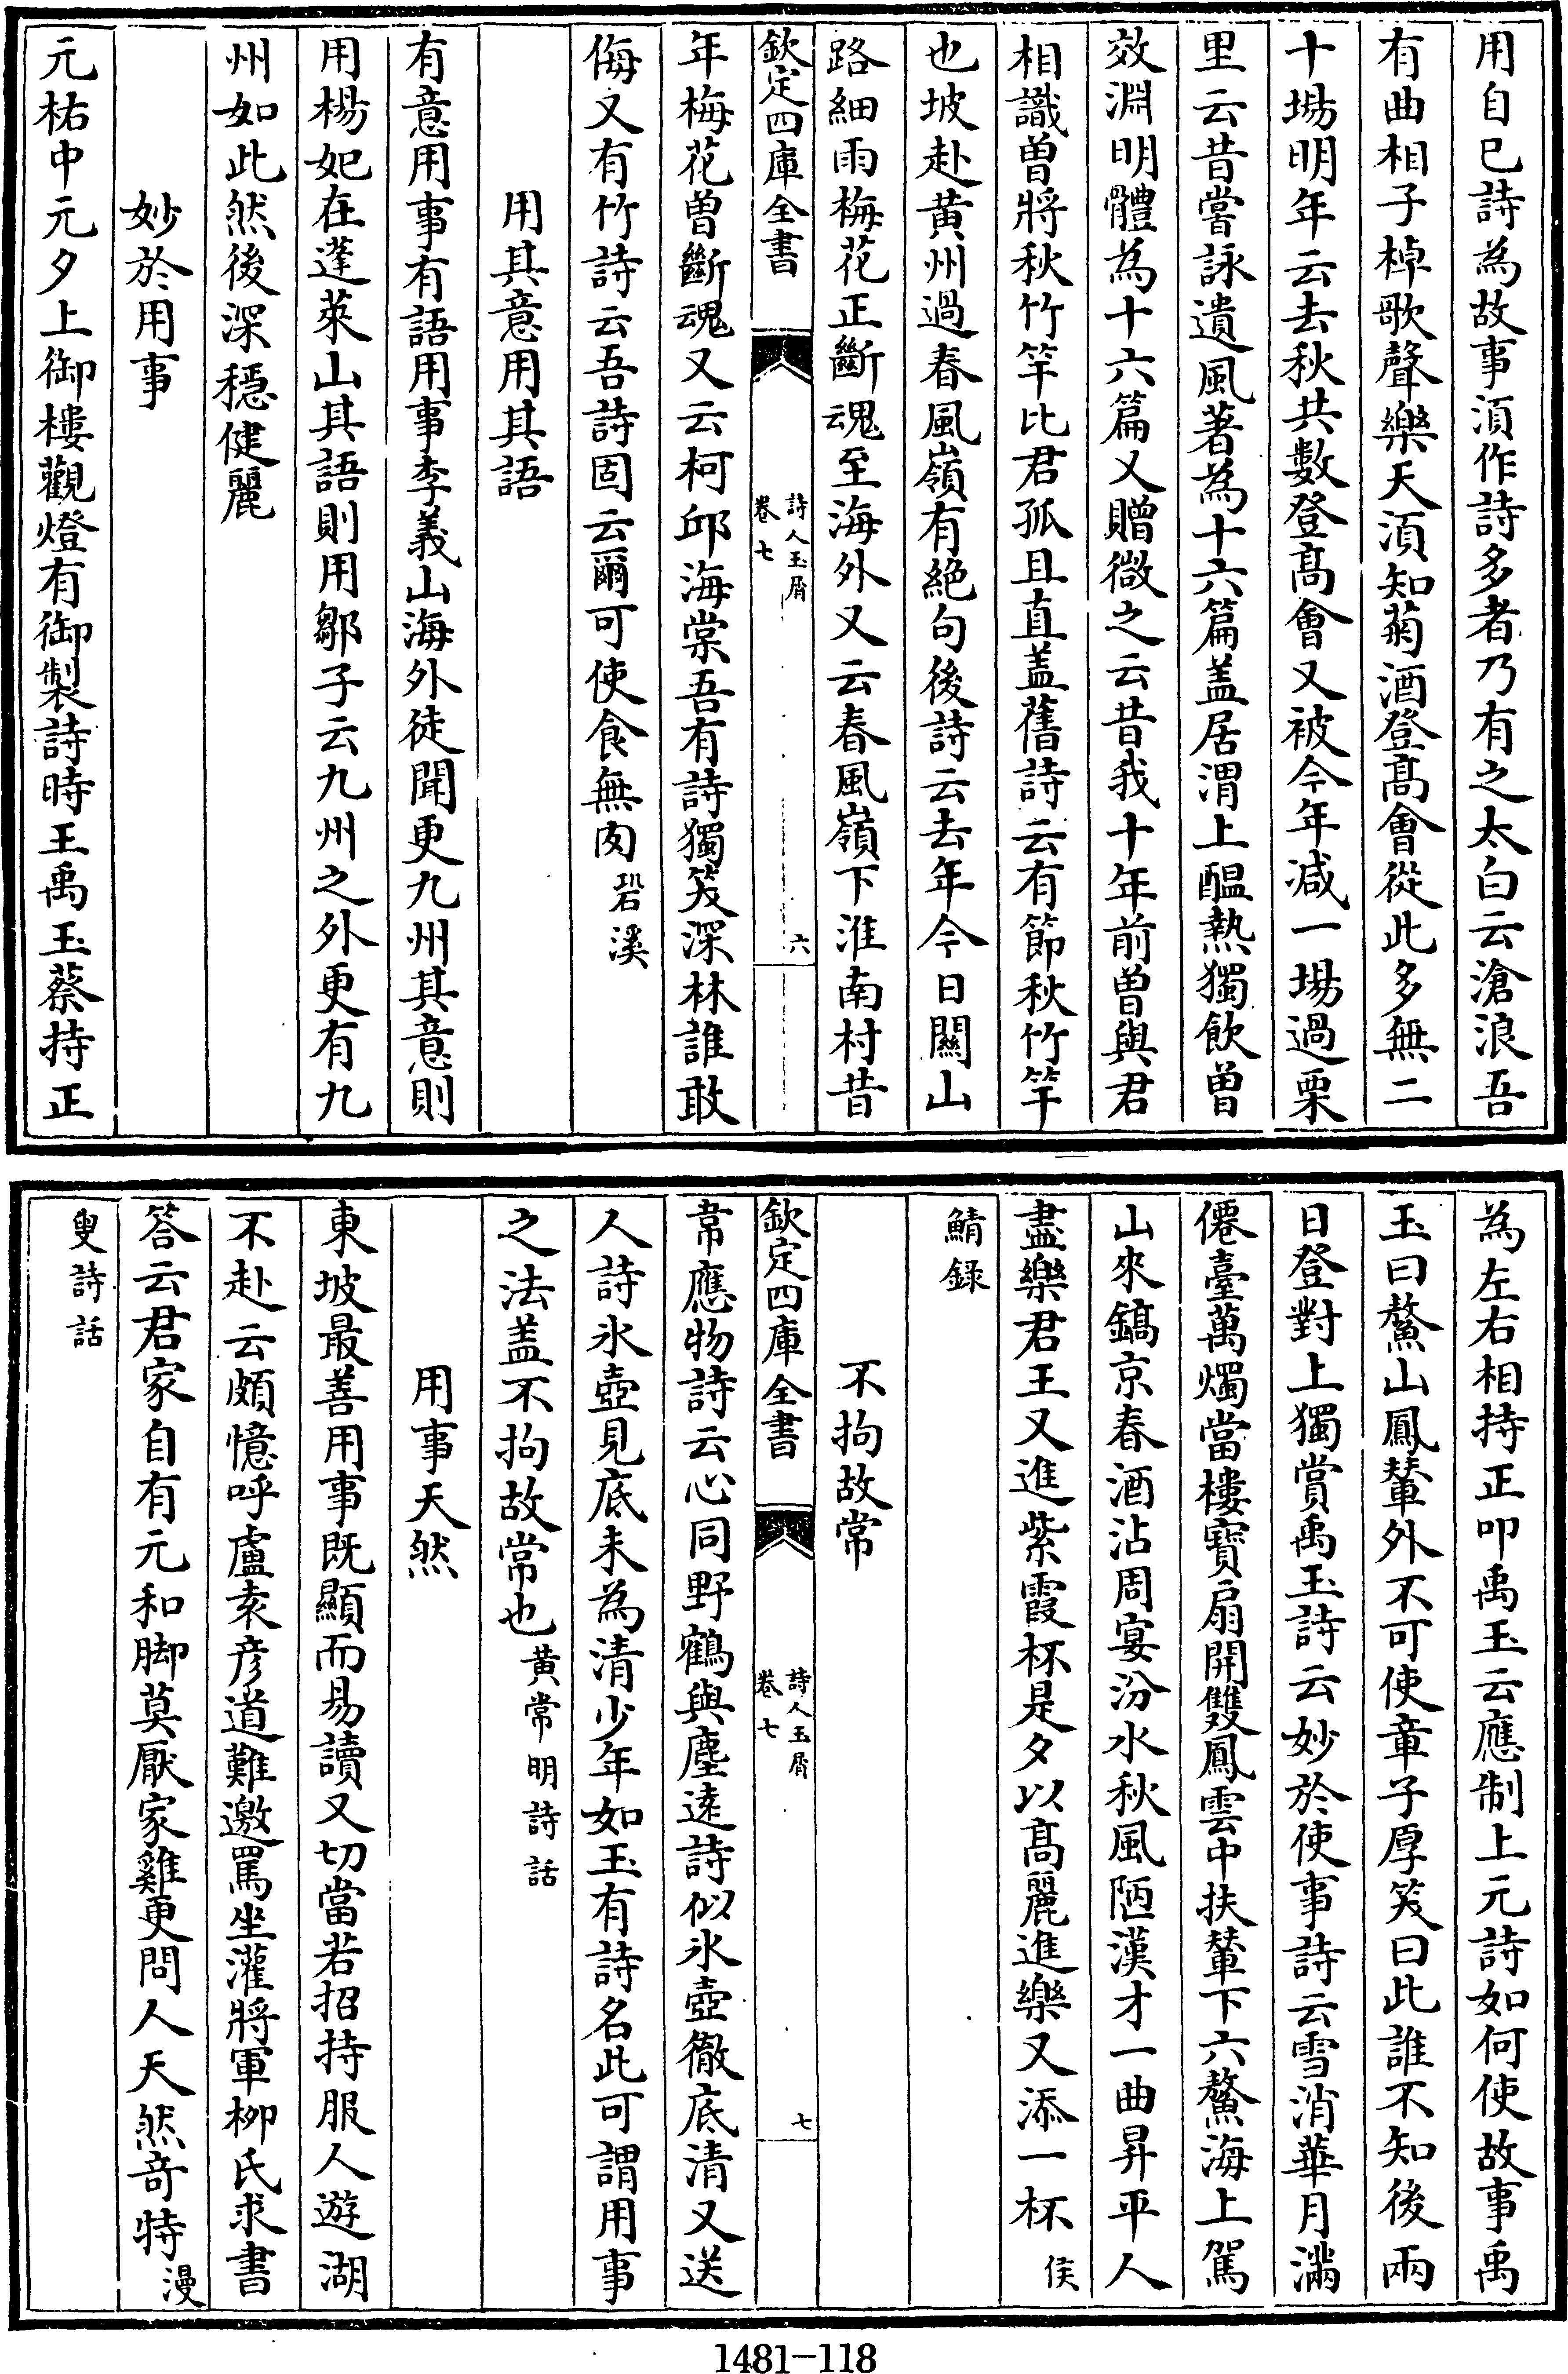 用自已詩為故事湏作詩多者乃有之太白云滄浪吾
有曲相子棹歌聲樂天湏知菊酒登髙會從此多無二
十場明年云去秋共數登髙會又被今年减一場過栗
里云昔嘗詠遺風著為十六篇盖居渭上醖熱獨飲曾
效淵明體為十六篇又贈微之云昔我十年前曾與君
相識曾將秋竹竿比君孤且直盖舊詩云有節秋竹竿
也坡赴黄州過春風嶺有絶句後詩云去年今日關山
路細雨梅花正斷魂至海外又云春風嶺下淮南村昔
欽定四庫全書
詩人玉屑
卷七
六
年梅花曾斷魂又云柯邱海棠吾有詩獨笑深林誰敢
侮又有竹詩云吾詩固云爾可使食無肉 碧溪
用其意用其語
有意用事有語用事李義山海外徒聞更九州其意則
用楊妃在蓬萊山其語則用鄒子云九州之外更有九
州如此然後深穩健麗
妙於用事
元祐中元夕上御樓觀燈有御製詩時王禹玉蔡持正
為左右相持正叩禹玉云應制上元詩如何使故事禹
玉曰鰲山鳳輦外不可使章子厚笑曰此誰不知後兩
日登對上獨賞禹玉詩云妙於使事詩云雪消華月滿
僊臺萬燭當樓寳扇開雙鳳雲中扶輦下六鰲海上駕
山來鎬京春酒沾周宴汾水秋風陋漢才一曲昇平人
盡樂君王又進紫霞杯是夕以髙麗進樂又添一杯 侯
鯖録
不拘故常
欽定四庫全書
詩人玉屑
卷七
七
韋應物詩云心同野鶴與塵遠詩似氷壺徹底清又送
人詩氷壺見底未為清少年如玉有詩名此可謂用事
之法盖不拘故常也 黄常明詩話
用事天然
東坡最善用事既顯而易讀又切當若招持服人遊湖
不赴云頗憶呼盧袁彦道難邀罵坐灌將軍栁氏求書
答云君家自有元和脚莫厭家雞更問人天然竒特 漫
叟詩話
1481-118